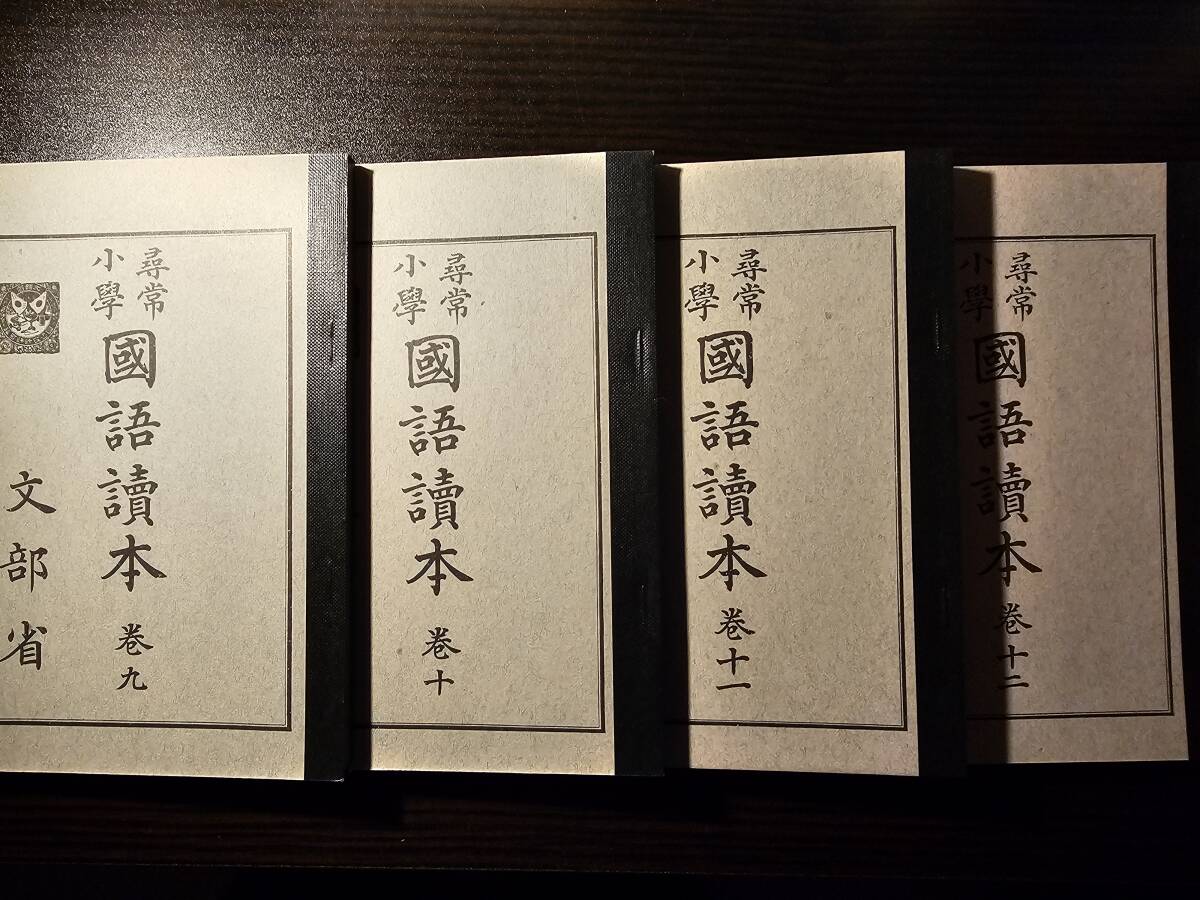 尋常
小學
國語讀本 卷九
文部省
尋常
小學
國語讀本 卷十
尋常
小學
國語讀本 卷十一
尋常
小學
國語讀本 卷十二